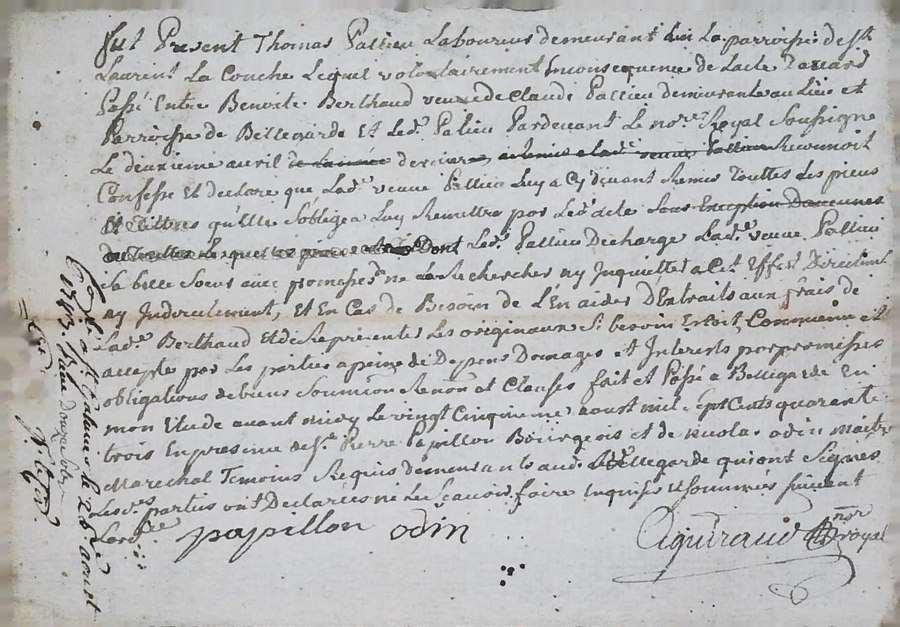 fut Present Thomas Pallieu Laboureur demeurant en La parroisse de st
Laurent La Couche Lequel volontairement en consequence de Lacte
Passé Entre Benoite Berthaud veuve de Claude Pallieu demeurante au Lieu et
Parroisse de Bellegarde Et Led. Palieu Pardevant Le nore Royal Soussigne
Le deuxieme avril dernier Reconnoit
Confesse Et declare que Lad. veuve Pallieu Luy a Cy devant Remis Touttes Les pieces
Et Tittres qu'elle s'obligea Luy Remettre par Led. acte Sans Exception
Dont Led. Pallieu Decharge Lad. veuve Pallieu
sa belle Soeur avec promesse ne La Rechercher ny Inquietter a Cet Effet Directemt
ny Indirectement, et En Cas de Besoin de L'En aider D'Extraits aux frais de
Lad. Berthaud Et de Representer Les originaux Sy besoin Estoit, Convenu et
accepte par Les parties a peine de Depens Domages et Interests par promesses
obligations de biens Soumission Renon et Clauses fait et Passé a Bellegarde En
mon Etude avant midy Le vingt Cinquieme aoust mil sept Cents quarante
trois En presence de Sr Pierre Papillon Bourgeois et de nicolas odin maitre
Marechal Temoins Requis demeurants aud. Bellegarde qui ont Signes
Les parties ont Declarees ne Le Scavoir faire Enquises et Sommées suivant
Lordce
papillon odin
Aguiraud nre royal
a st Galmier le 26 aoust
1743 douze sols